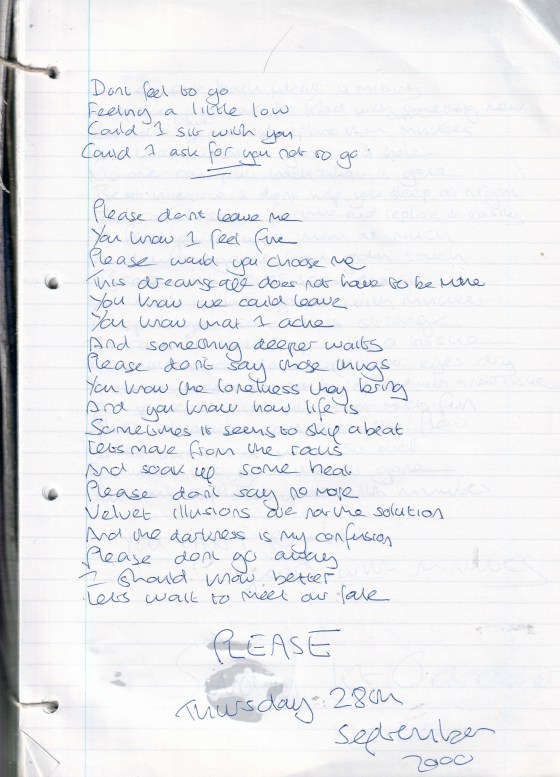 Dont feel to go
Feeling a little low
Could I sit with you
Could I ask for you not to go
Please dont leave me
You know I feel fine
Please would you choose me
This dreamscape does not have to be mine
You know we could leave
You know that I ache
And something deeper waits
Please don't say those things
You know the loneliness they bring
And you know how life is
Sometimes it seems to skip a beat
Lets move from the rocks
And soak up some heat
Please don't say no more
Velvet illusions are not the solution
And the darkness is my confusion
Please dont go away
I should know better
Lets wait to meet our fate
PLEASE
Thursday 28th
September
2000